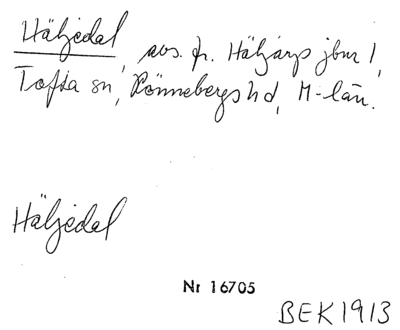 Häljedal, avs. fr. Häljarp jbm 1,
Tofta sn, Rönnebergs hd, M-län.
Häljedal
Nr 16705
BEK 1913